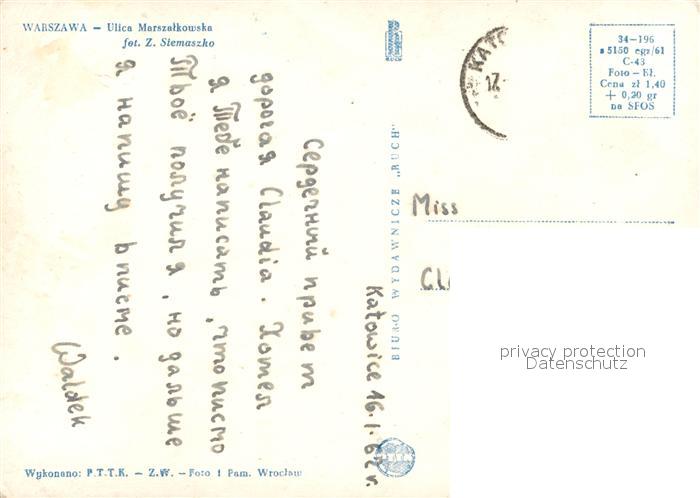 WARSZAWA – Ulica Marszałkowska
fot. Z. Siemaszko
Katowice 16.I.62r.
Сердечный привет
дорогая Claudia. Хотел
я Тебе написать, что писмо
Твоё получил я, но дальше
я напишу в писме.
Waldek
Wykonano: P.T.T.K. – Z.W. – Foto i Pam. Wrocław
BIURO WYDAWNICZE „RUCH"
KATO
17
34-196
a 5150 egz/61
C-43
Foto – Kł.
Cena zł 1,40
+ 0,20 gr
na SFOS
Miss
Cl
privacy protection
Datenschutz